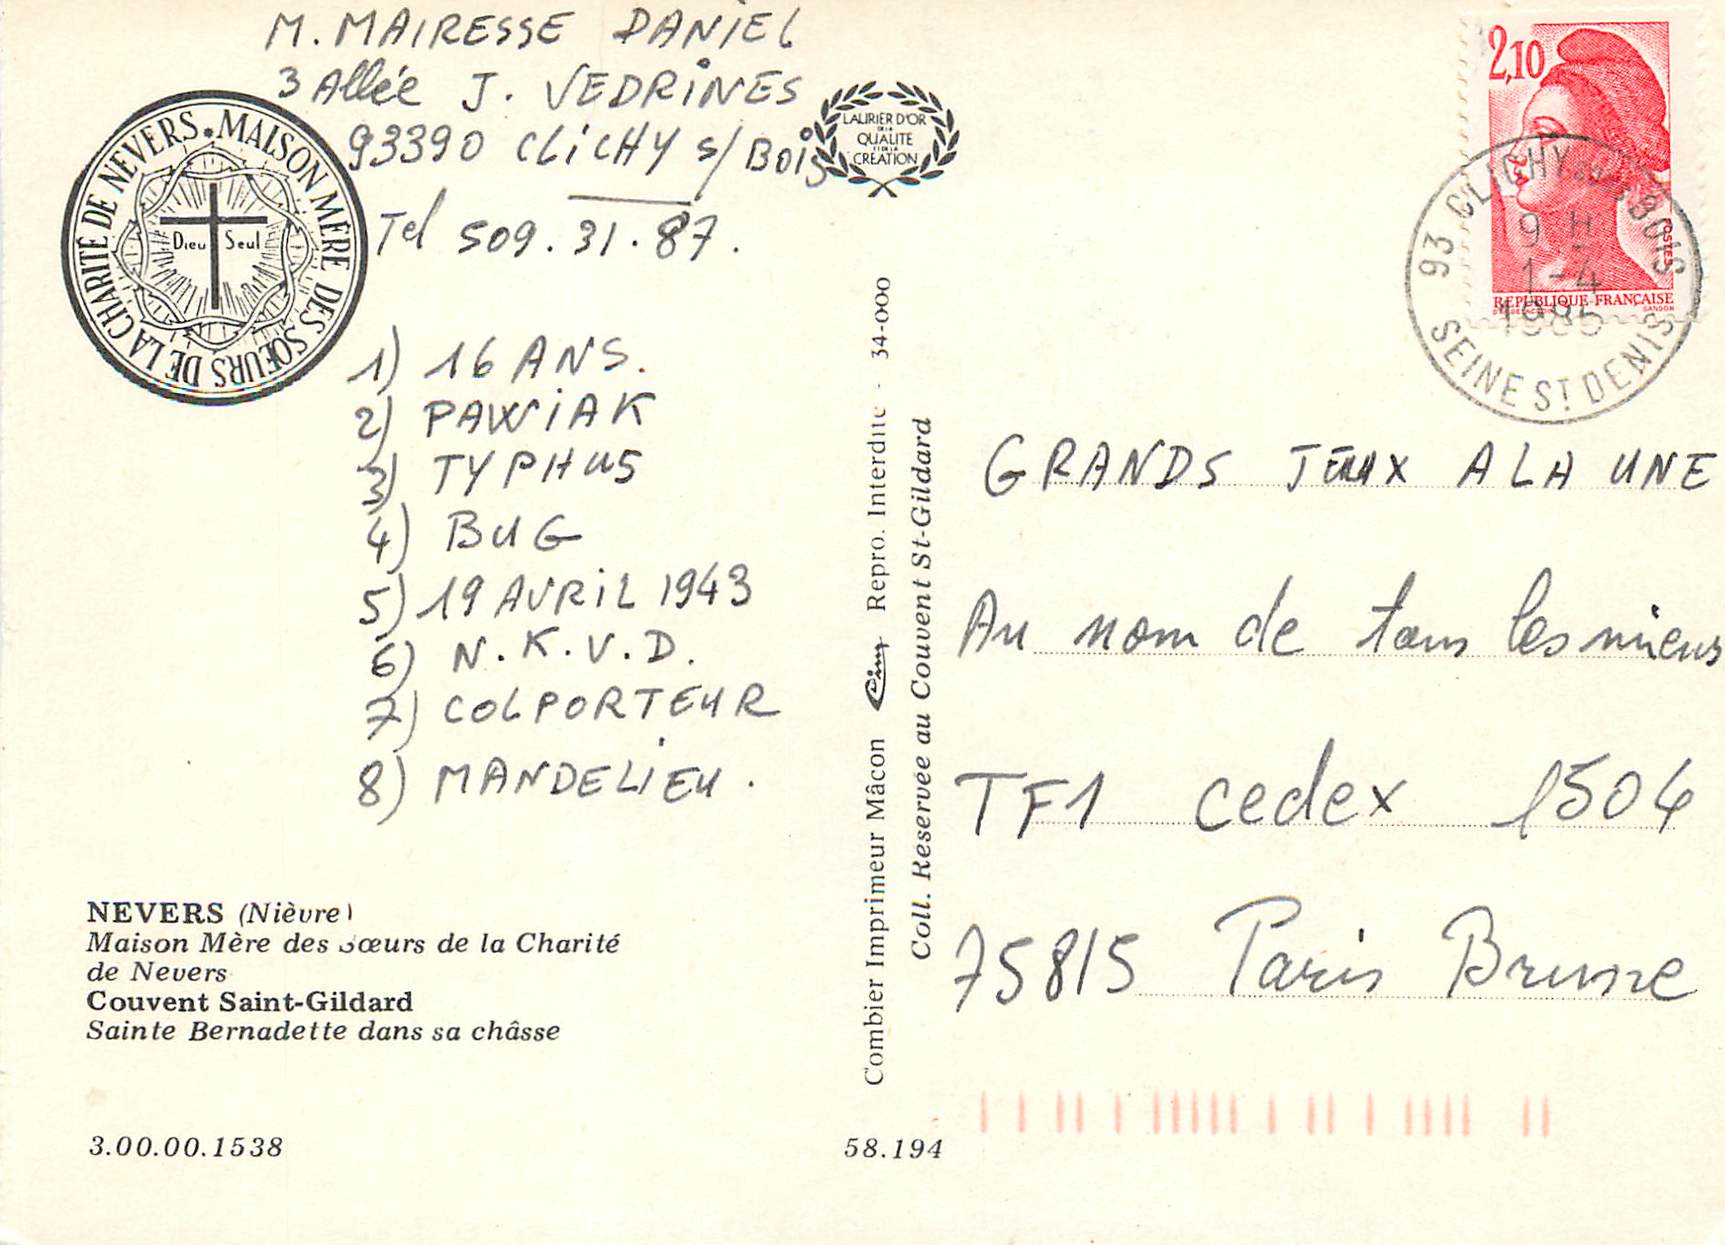 M. MAIRESSE DANIEL
3 Allée J. VEDRINES
93390 CLICHY s/ BOIS
Tel 509.31.87.
MAISON MÈRE DES SŒURS DE LA CHARITÉ DE NEVERS
Dieu Seul
LAURIER D'OR
DE LA
QUALITE
ET DE LA
CRÉATION
1) 16 ANS.
2) PAWIAK
3) TYPHUS
4) BUG
5) 19 AVRIL 1943
6) N.K.V.D.
7) COLPORTEUR
8) MANDELIEU.
NEVERS (Nièvre)
Maison Mère des Sœurs de la Charité
de Nevers
Couvent Saint-Gildard
Sainte Bernadette dans sa châsse
3.00.00.1538
58.194
Combier Imprimeur Mâcon Cim Repro. Interdite - 34-000
Coll. Reservée au Couvent St-Gildard
2,10
POSTES
REPUBLIQUE FRANÇAISE
GANDON
93 CLICHY sous BOIS
9 H
1-4
1985
SEINE ST DENIS
GRANDS JEUX A LA UNE
Au nom de tous les miens
TF1 cedex 1504
75815 Paris Brune